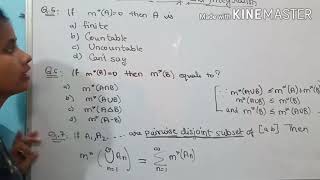 Made with
KINEMASTER
and Integration
Q.5: If m*(A)=0 then A is
a) finite
b) Countable
c) Uncountable
d) Cant say
Q.6: If m*(A)=0 then m*(B) equals to?
a) m*(A∩B)
b) m*(A∪B)
c) m*(AΔB)
d) m*(A-B)
∵ m*(A∪B) ≤ m*(A)+m*(B)
m*(B) ≤ m*(A∪B)
and m*(A∪B) ≤ m*(B)
Q.7: If A₁,A₂... are pairwise disjoint subset of [a b] Then
m*(∞∪n=1 An) = ∞Σn=1 m*(An)